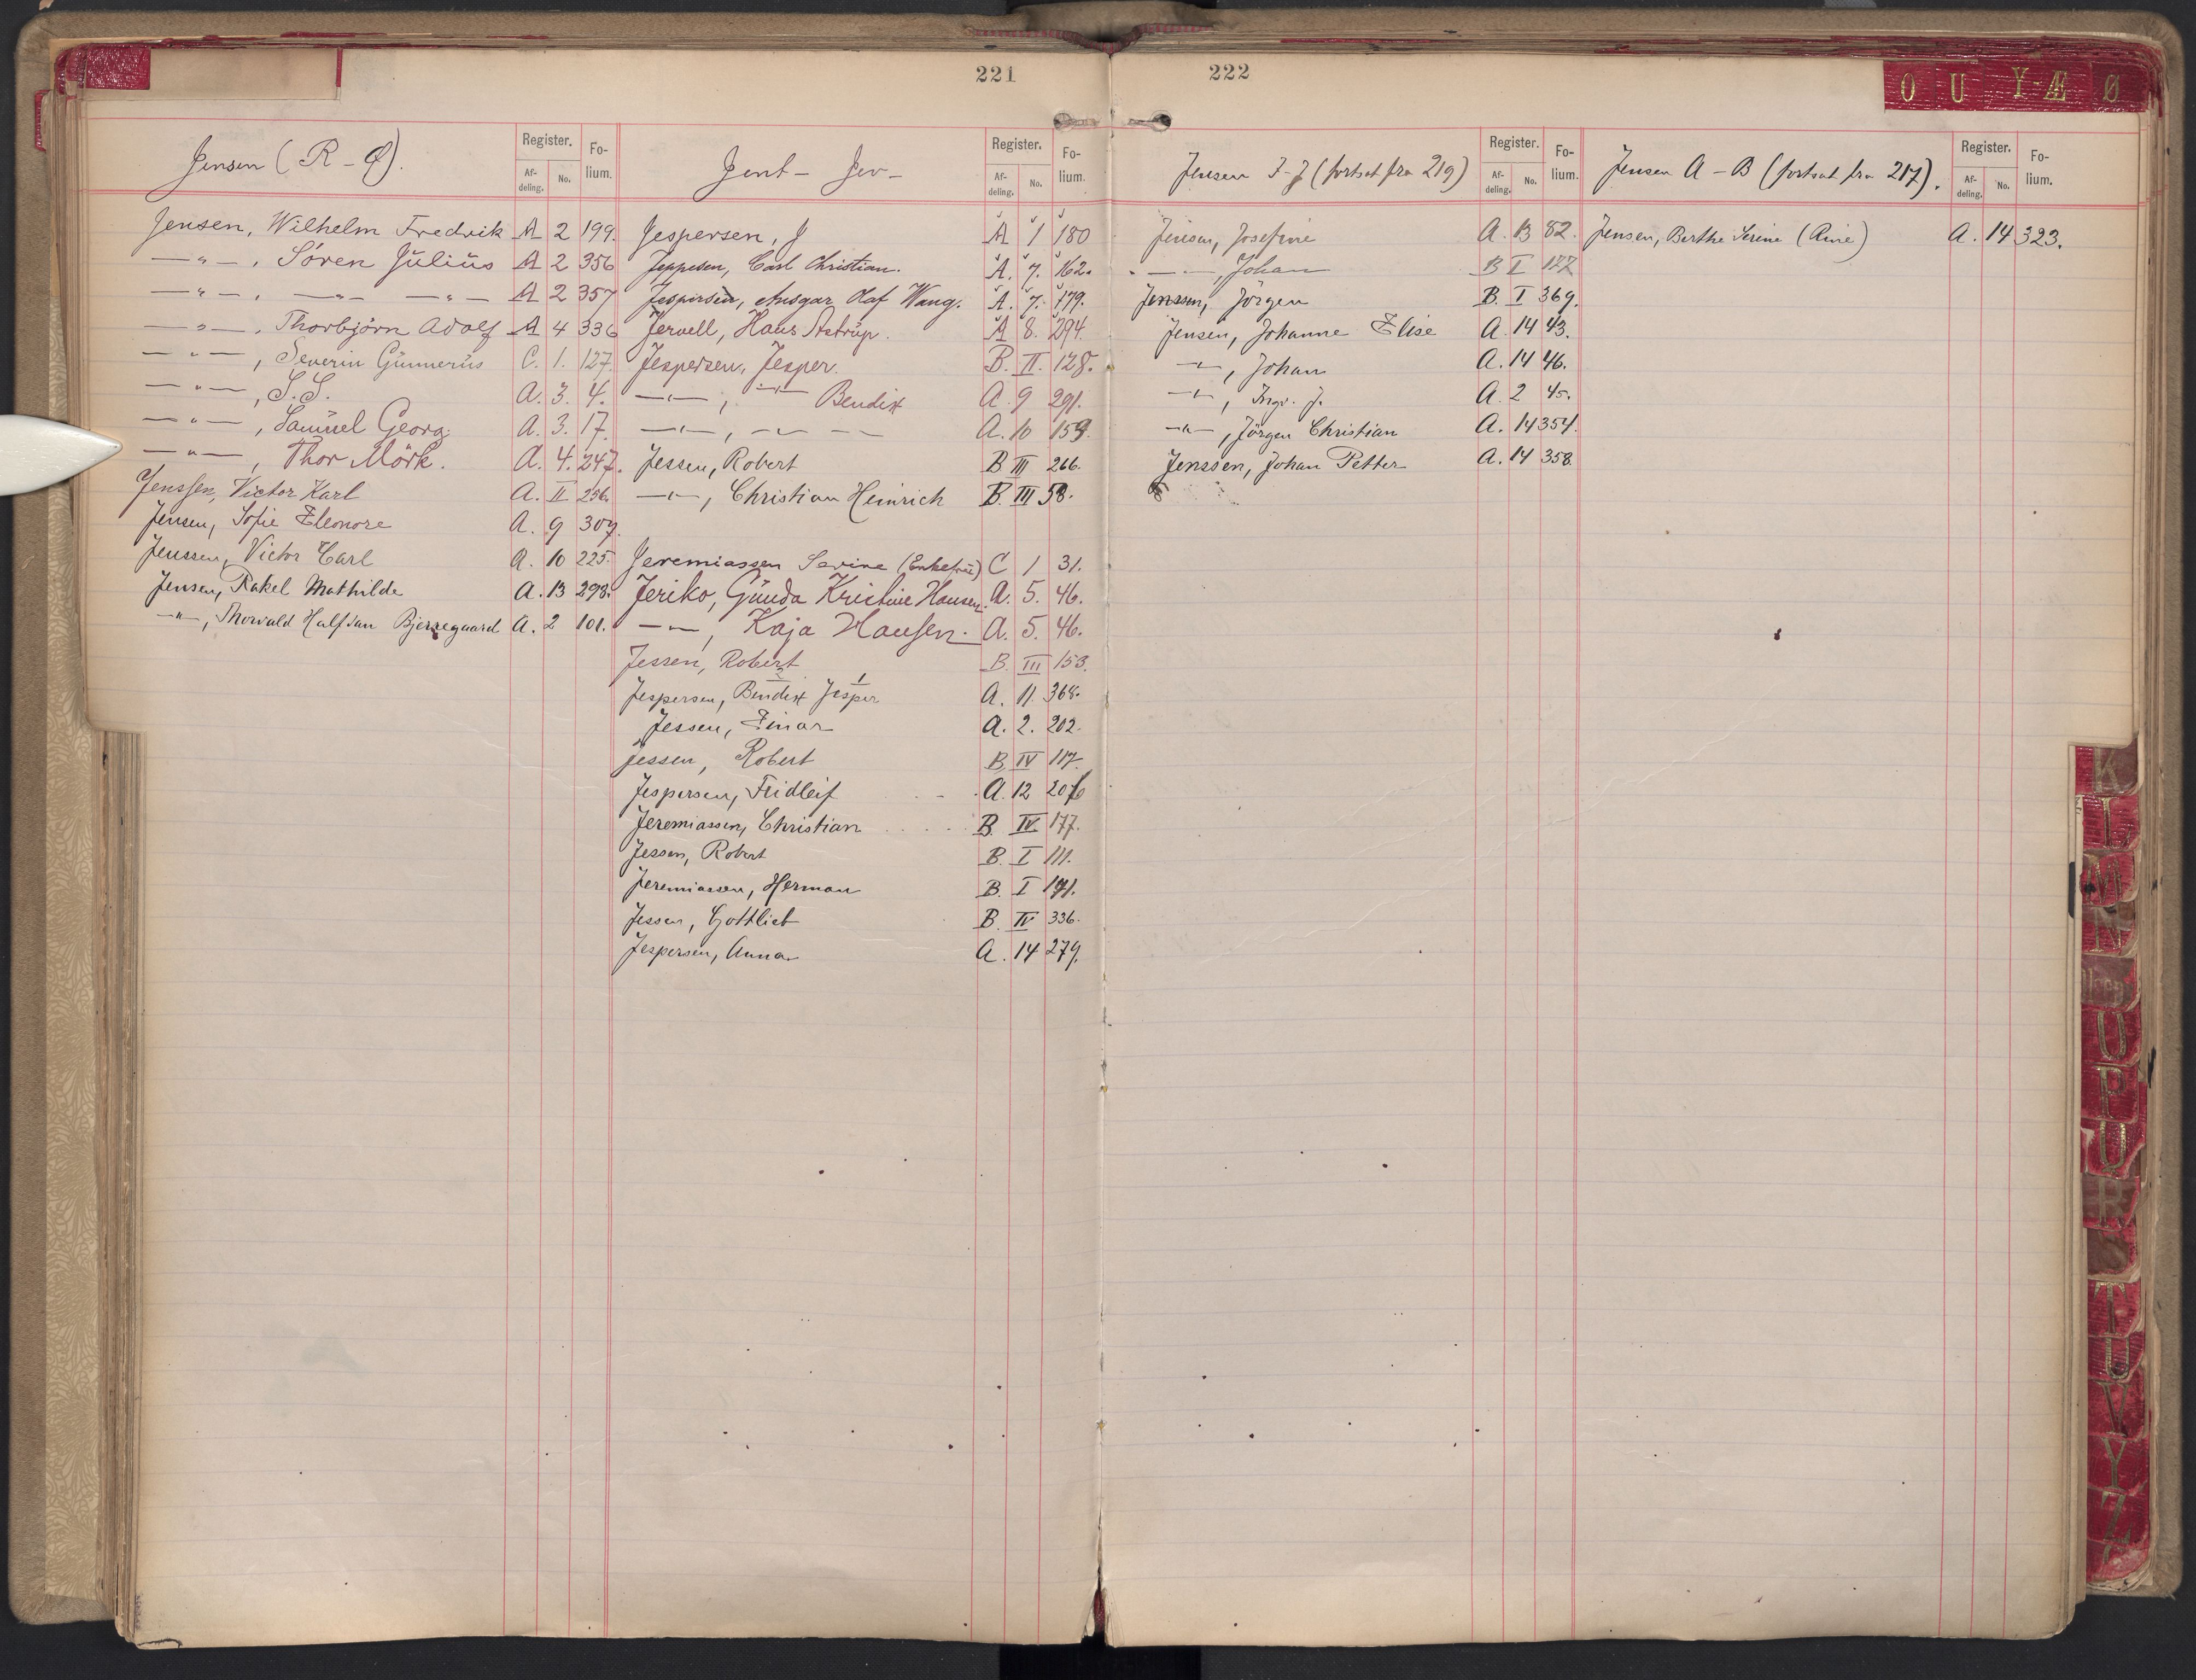 221
Jensen (R - Ø).
Register. Fo-lium.
Af-deling. No.
Jensen, Wilhelm Fredrik A 2 199.
—"—, Sören Julius A 2 356
—"—, —"— —"— A 2 357
—"—, Thorbjörn Adolf A 4 336
—"—, Severin Gunnerus C. 1. 127.
—"—, S. S. A. 3. 4.
—"—, Samuel Georg. A. 3. 17.
—"—, Thor Mörk. A. 4. 247.
Jenssen, Victor Karl A. II 256.
Jensen, Sofie Eleonore A. 9 309.
Jenssen, Victor Carl A. 10 225.
Jensen, Rakel Mathilde A. 13 298.
—"—, Thorvald Halfdan Bjerregaard A. 2 101.
Jent - Jer -
Register. Fo-lium.
Af-deling. No.
Jespersen, J A 1 180
Jeppesen, Carl Christian. A. 7. 162.
Jespersen, Ansgar Olaf Wang. A. 7. 179.
Jervell, Hans Astrup. A 8. 294.
Jespersen, Jesper. B. II. 128.
—"—, —"— Bendix A. 9 291.
—"—, —"— —"— A. 10 159.
Jessen, Robert B III 266.
—"—, Christian Heinrich B. III 58.
Jeremiassen Serine (Enkefru) C 1 31.
Jeriko, Gunda Kristine Hansen. A. 5. 46.
—"—, Kaja Hansen. A. 5. 46.
Jessen, Robert B. III 153.
Jespersen, Bendix Jesper A. 11. 368.
Jessen, Einar A. 2. 202.
Jessen, Robert B IV 117.
Jespersen, Fridleif A. 12 206
Jeremiassen, Christian B. IV. 177.
Jessen, Robert B. I 111.
Jeremiassen, Herman B. I 191.
Jessen, Gottlieb B. IV 336.
Jespersen, Anna A. 14 279.
222
Jensen I-J (fortsat fra 219)
Register. Fo-lium.
Af-deling. No.
Jensen, Josefine A. 13 82.
—"—, Johan B I 127
Jenssen, Jörgen B. I 369.
Jensen, Johanne Elise A. 14 43.
—"—, Johan A. 14 46.
—"—, Ingv. J. A. 2 45.
—"—, Jörgen Christian A. 14 354.
Jenssen, Johan Petter A. 14 358.
Jensen A - B (fortsat fra 217).
Register. Fo-lium.
Af-deling. No.
Jensen, Berthe Serine (Rine) A. 14 323.
O U Y Æ Ø
K
L
M
N
U
P
U
R
T
U
V
Y
Z